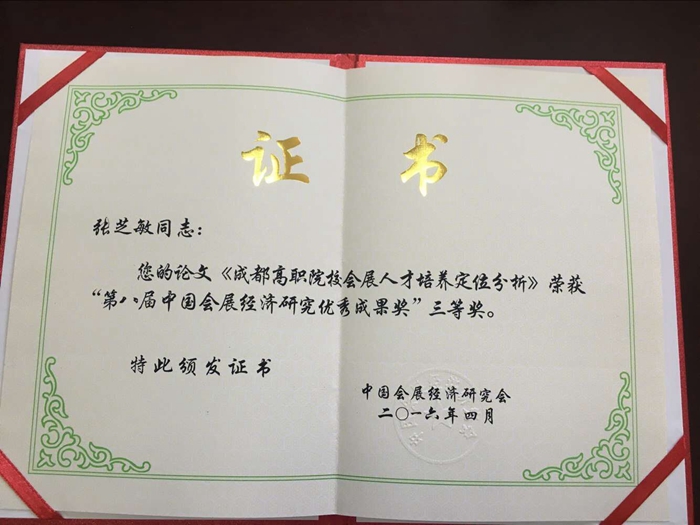 证书
张芝敏同志：
您的论文《成都高职院校会展人才培养定位分析》荣获
“第八届中国会展经济研究优秀成果奖”三等奖。
特此颁发证书
中国会展经济研究会
二〇一六年四月